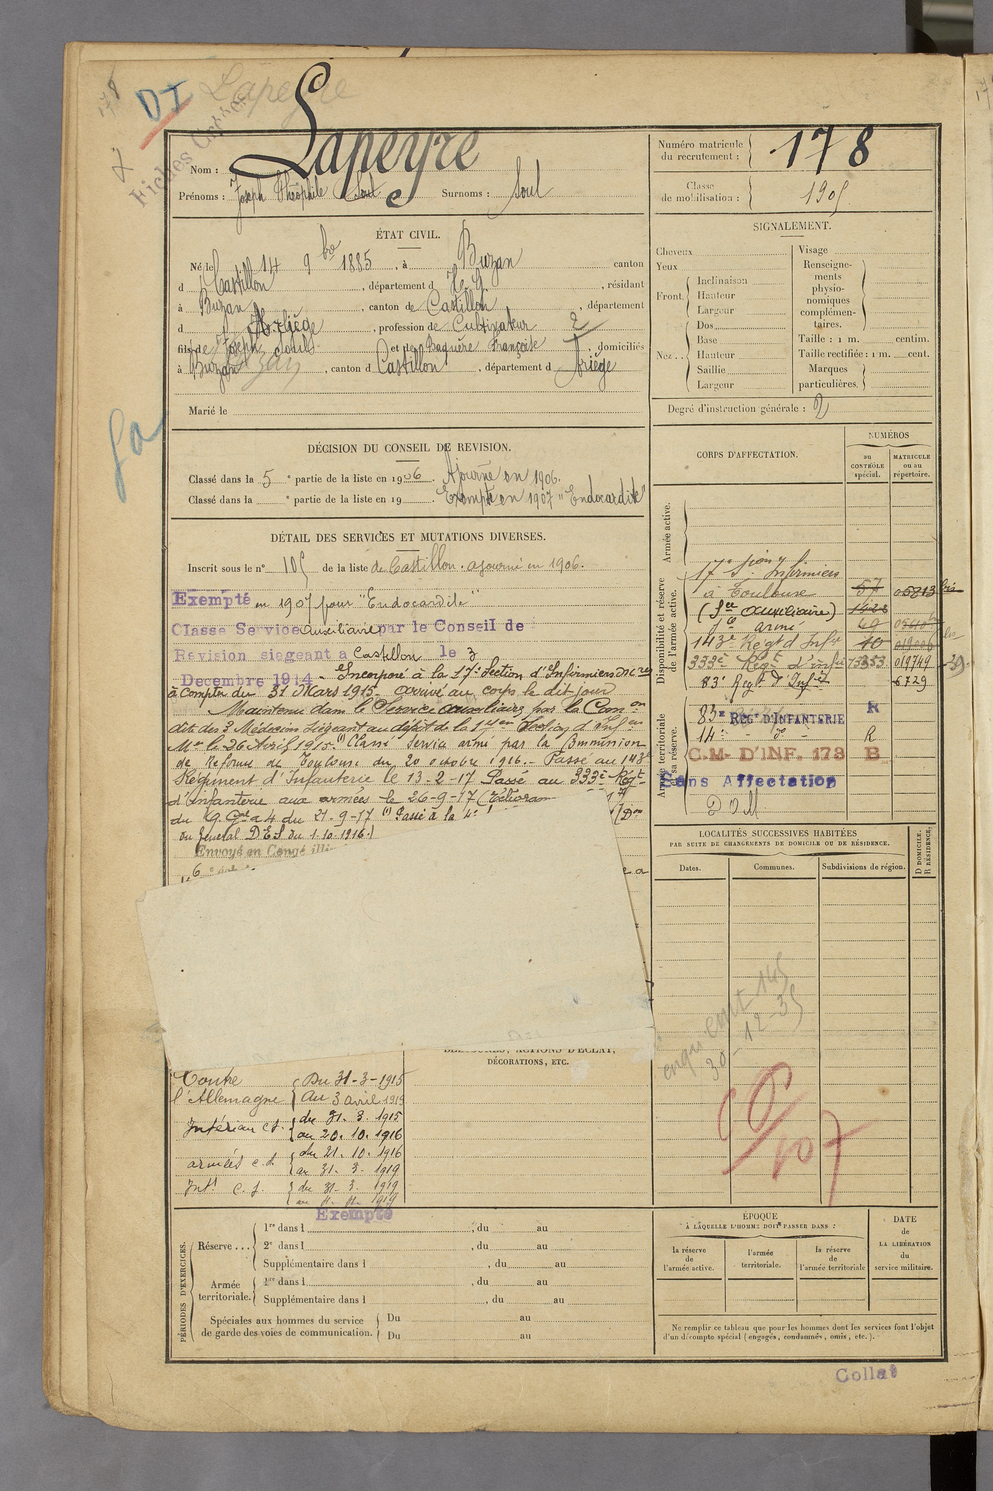 178
DI
Lapeyre
Nom : Lapeyre
Prénoms : Joseph Théophile Soul Surnoms : Soul
Numéro matricule du recrutement : 178
Classe de mobilisation : 1905
ÉTAT CIVIL.
Né le 14 9bre 1885, à Buzan canton
d Castillon, département d H. G., résidant
à Buzan, canton de Castillon, département
d Ariège, profession de Cultivateur 2
fils de Joseph, Jouls et de Baquère Françoise, domiciliés
à Buzan, canton d Castillon, département d Ariège
Marié le
SIGNALEMENT.
Cheveux
Yeux
Front. Inclinaison
Hauteur
Largeur
Nez.. Dos
Base
Hauteur
Saillie
Largeur
Visage
Renseignements physionomiques complémentaires.
Taille : 1 m. centim.
Taille rectifiée : 1 m. cent.
Marques particulières.
Degré d'instruction générale : 2
DÉCISION DU CONSEIL DE REVISION.
Classé dans la 5e partie de la liste en 1906. Ajourné en 1906.
Classé dans la e partie de la liste en 19 . Exempté en 1907 "Endocardite"
DÉTAIL DES SERVICES ET MUTATIONS DIVERSES.
Inscrit sous le n° 105 de la liste de Castillon. ajourné en 1906.
Exempté en 1907 pour "Endocardite"
Classe Service auxiliaire par le Conseil de
Revision siegeant a Castillon le 3
Decembre 1914 - Incorporé à la 17e Section d'Infirmiers Mres
à compter du 31 Mars 1915. arrivé au corps le dit jour
Maintenu dans le Service auxiliaire par la Comon
dite des 3 Médecins siégeant au dépôt de la 17e Section d'Infen
Mre le 26 Avril 1915. (1) Classé Service armé par la Commission
de Réforme de Toulouse du 20 octobre 1916. - Passé au 143e
Régiment d'Infanterie le 13-2-17 Passé au 333e Régt
d'infanterie aux armées le 26-9-17
du 21-9-17 (1) Passé à la 4e
du Général D.E.S du 1.10.1916.)
Envoyé en Congé illi
CORPS D'AFFECTATION.
NUMÉROS
au CONTRÔLE spécial.
MATRICULE ou au répertoire.
Armée active.
Disponibilité et réserve de l'armée active.
17e Sion Infirmiers
à Toulouse 57
(Sce auxiliaire)
armé
143e Regt d'Infie 10
333e Regt d'infie
83e Regt d'Infie 6729
Armée territoriale et sa réserve.
83e REGt D'INFANTERIE R
14e R
C.M. D'INF. 173 B
Sans Affectation
DOM
LOCALITÉS SUCCESSIVES HABITÉES
PAR SUITE DE CHANGEMENTS DE DOMICILE OU DE RÉSIDENCE.
Dates. Communes. Subdivisions de région. D DOMICILE. R RÉSIDENCE.
30-12-35
ACTIONS D'ÉCLAT,
DÉCORATIONS, ETC.
Contre l'Allemagne Du 31-3-1915
Au 3 avril 1919
Intérieur c.s. du 31. 3. 1915
au 20. 10. 1916
armées c.d. du 21. 10. 1916
au 31. 3. 1919
Intr c.s. du 31. 3. 1919
Exempté
PÉRIODES D'EXERCICES.
Réserve... 1re dans l , du au
2e dans l , du au
Supplémentaire dans l , du au
Armée territoriale. 1re dans l , du au
Supplémentaire dans l , du au
Spéciales aux hommes du service de garde des voies de communication. Du au
Du au
ÉPOQUE
À LAQUELLE L'HOMME DOIT PASSER DANS :
la réserve de l'armée active.
l'armée territoriale.
la réserve de l'armée territoriale
DATE DE LA LIBÉRATION du service militaire.
Ne remplir ce tableau que pour les hommes dont les services font l'objet
d'un décompte spécial (engagés, condamnés, omis, etc.).
Collat